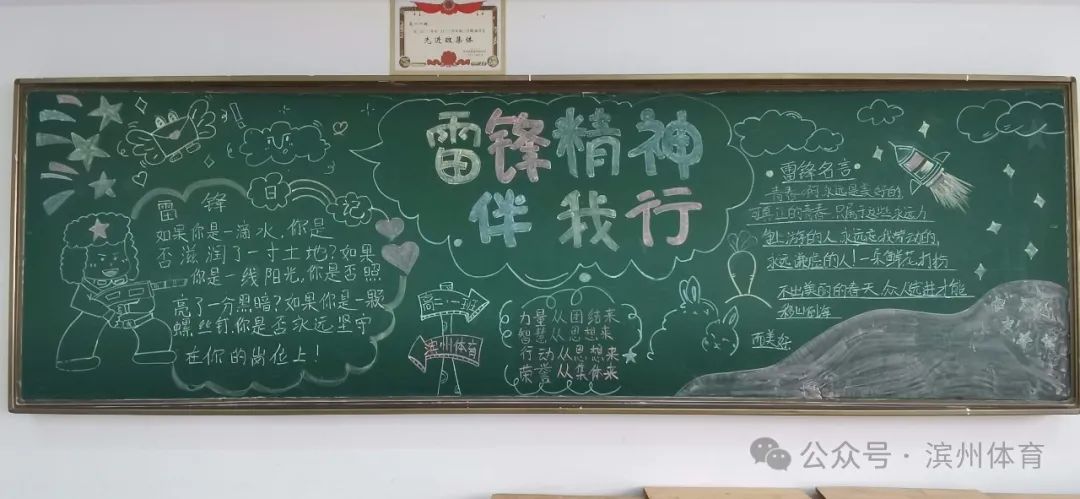 先进班集体
雷锋精神
伴我行
雷 锋 日记
如果你是一滴水,你是
否滋润了一寸土地?如果
你是一线阳光,你是否照
亮了一分黑暗?如果你是一颗
螺丝钉,你是否永远坚守
在你的岗位上!
高二·一班
滨州体育
力量从团结来
智慧从思想来
行动从思想来
荣誉从集体来
·雷锋名言·
青春啊,永远是美好的
可真正的青春 只属于这些永远力
争上游的人 永远忘我劳动的,
永远谦虚的人!一朵鲜花打扮
不出美丽的春天,众人先进才能
移山倒海
公众号·滨州体育